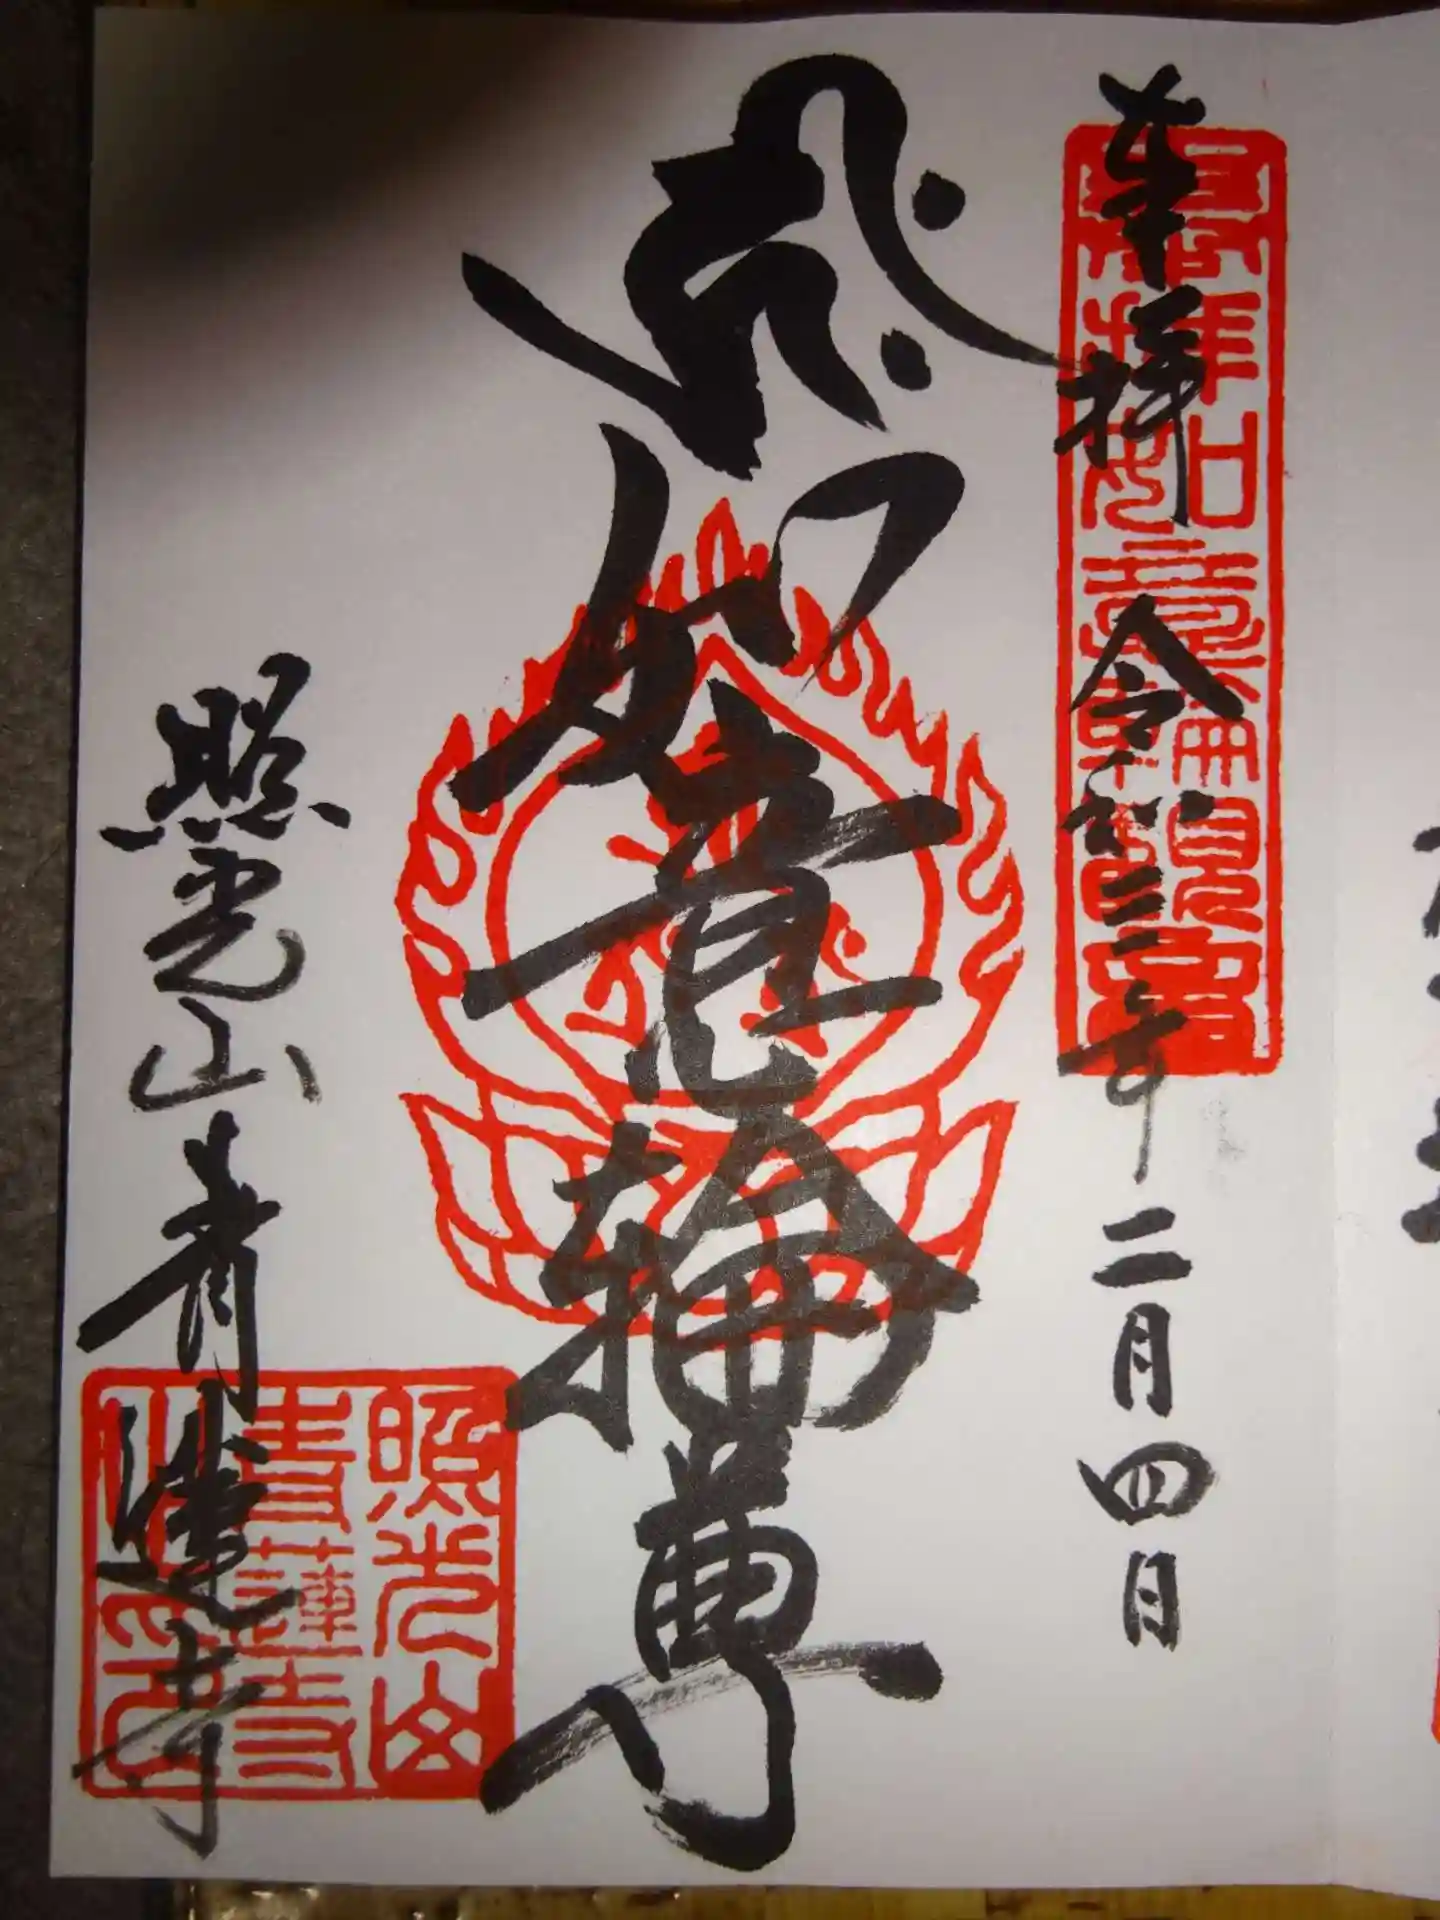 奉拝 令和二年二月四日
如意輪尊
照光山青蓮寺
照光山
青蓮寺